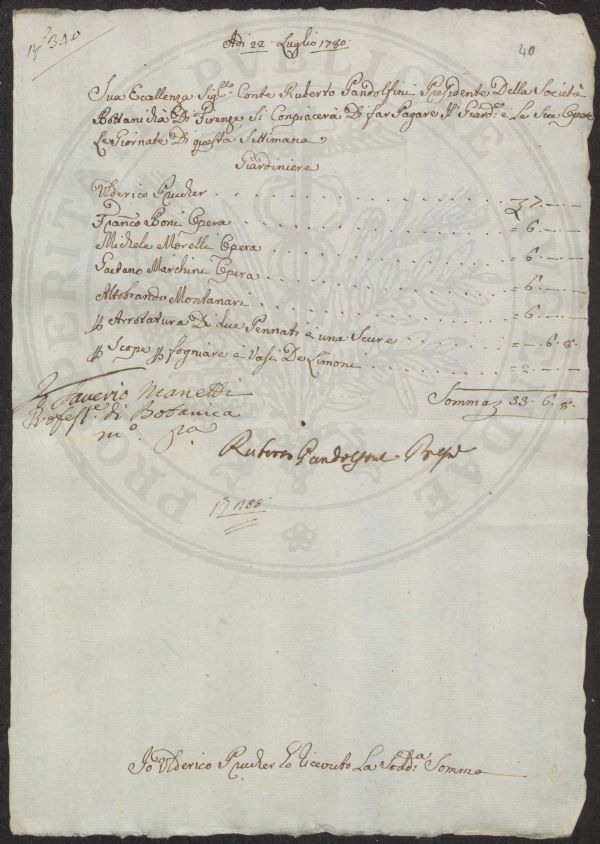 N.° 340
Adi 22 Luglio 1780:
40
Sua Eccellenza Sig.re Conte Ruberto Pandolfini Presidente Della Società
Bottanicha Di Firenze Si Conpiacerà Di far Pagare Il Giard.e e Le Sue Opere
Le Giornate Di questa Settimana
Giardiniere
Ulderico Prucher . . . . £ 7 . — . —
Franco Boni Opera . . . . = 6 . — . —
Michele Morelli Opera . . . . = 6 . — . —
Gaetano Marchini Opera . . . . = 6 . — . —
Altobrando Montanari . . . . = 6 . — . —
p Arrotatura Di due Pennati e una Scure . . . . = — . 6 . 8 .
p Scope p fogniare e Vasi De Limoni . . . . = 2 . — . —
Somma £ 33 . 6 . 8 .
Saverio Manetti
Profess.e di Botanica
m.° pa
Ruberto Pandolfini Presid
N 1188
Io Ulderico Prucher ho ricevuto La Sodd.a Somma
PROSPERITATI PUBLICAE